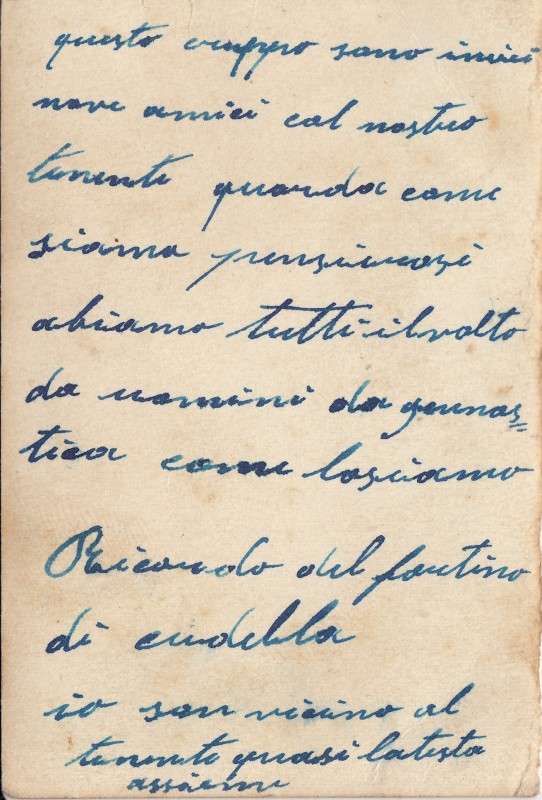 questo sono i miei
nove amici col nostro
tenente guarda come
siamo pensierosi
abiamo tutti il volto
da uomini da ginnas=
tica come lo siamo
Ricordo del fortino
di
io son vicino al
tenente quasi la testa
assieme